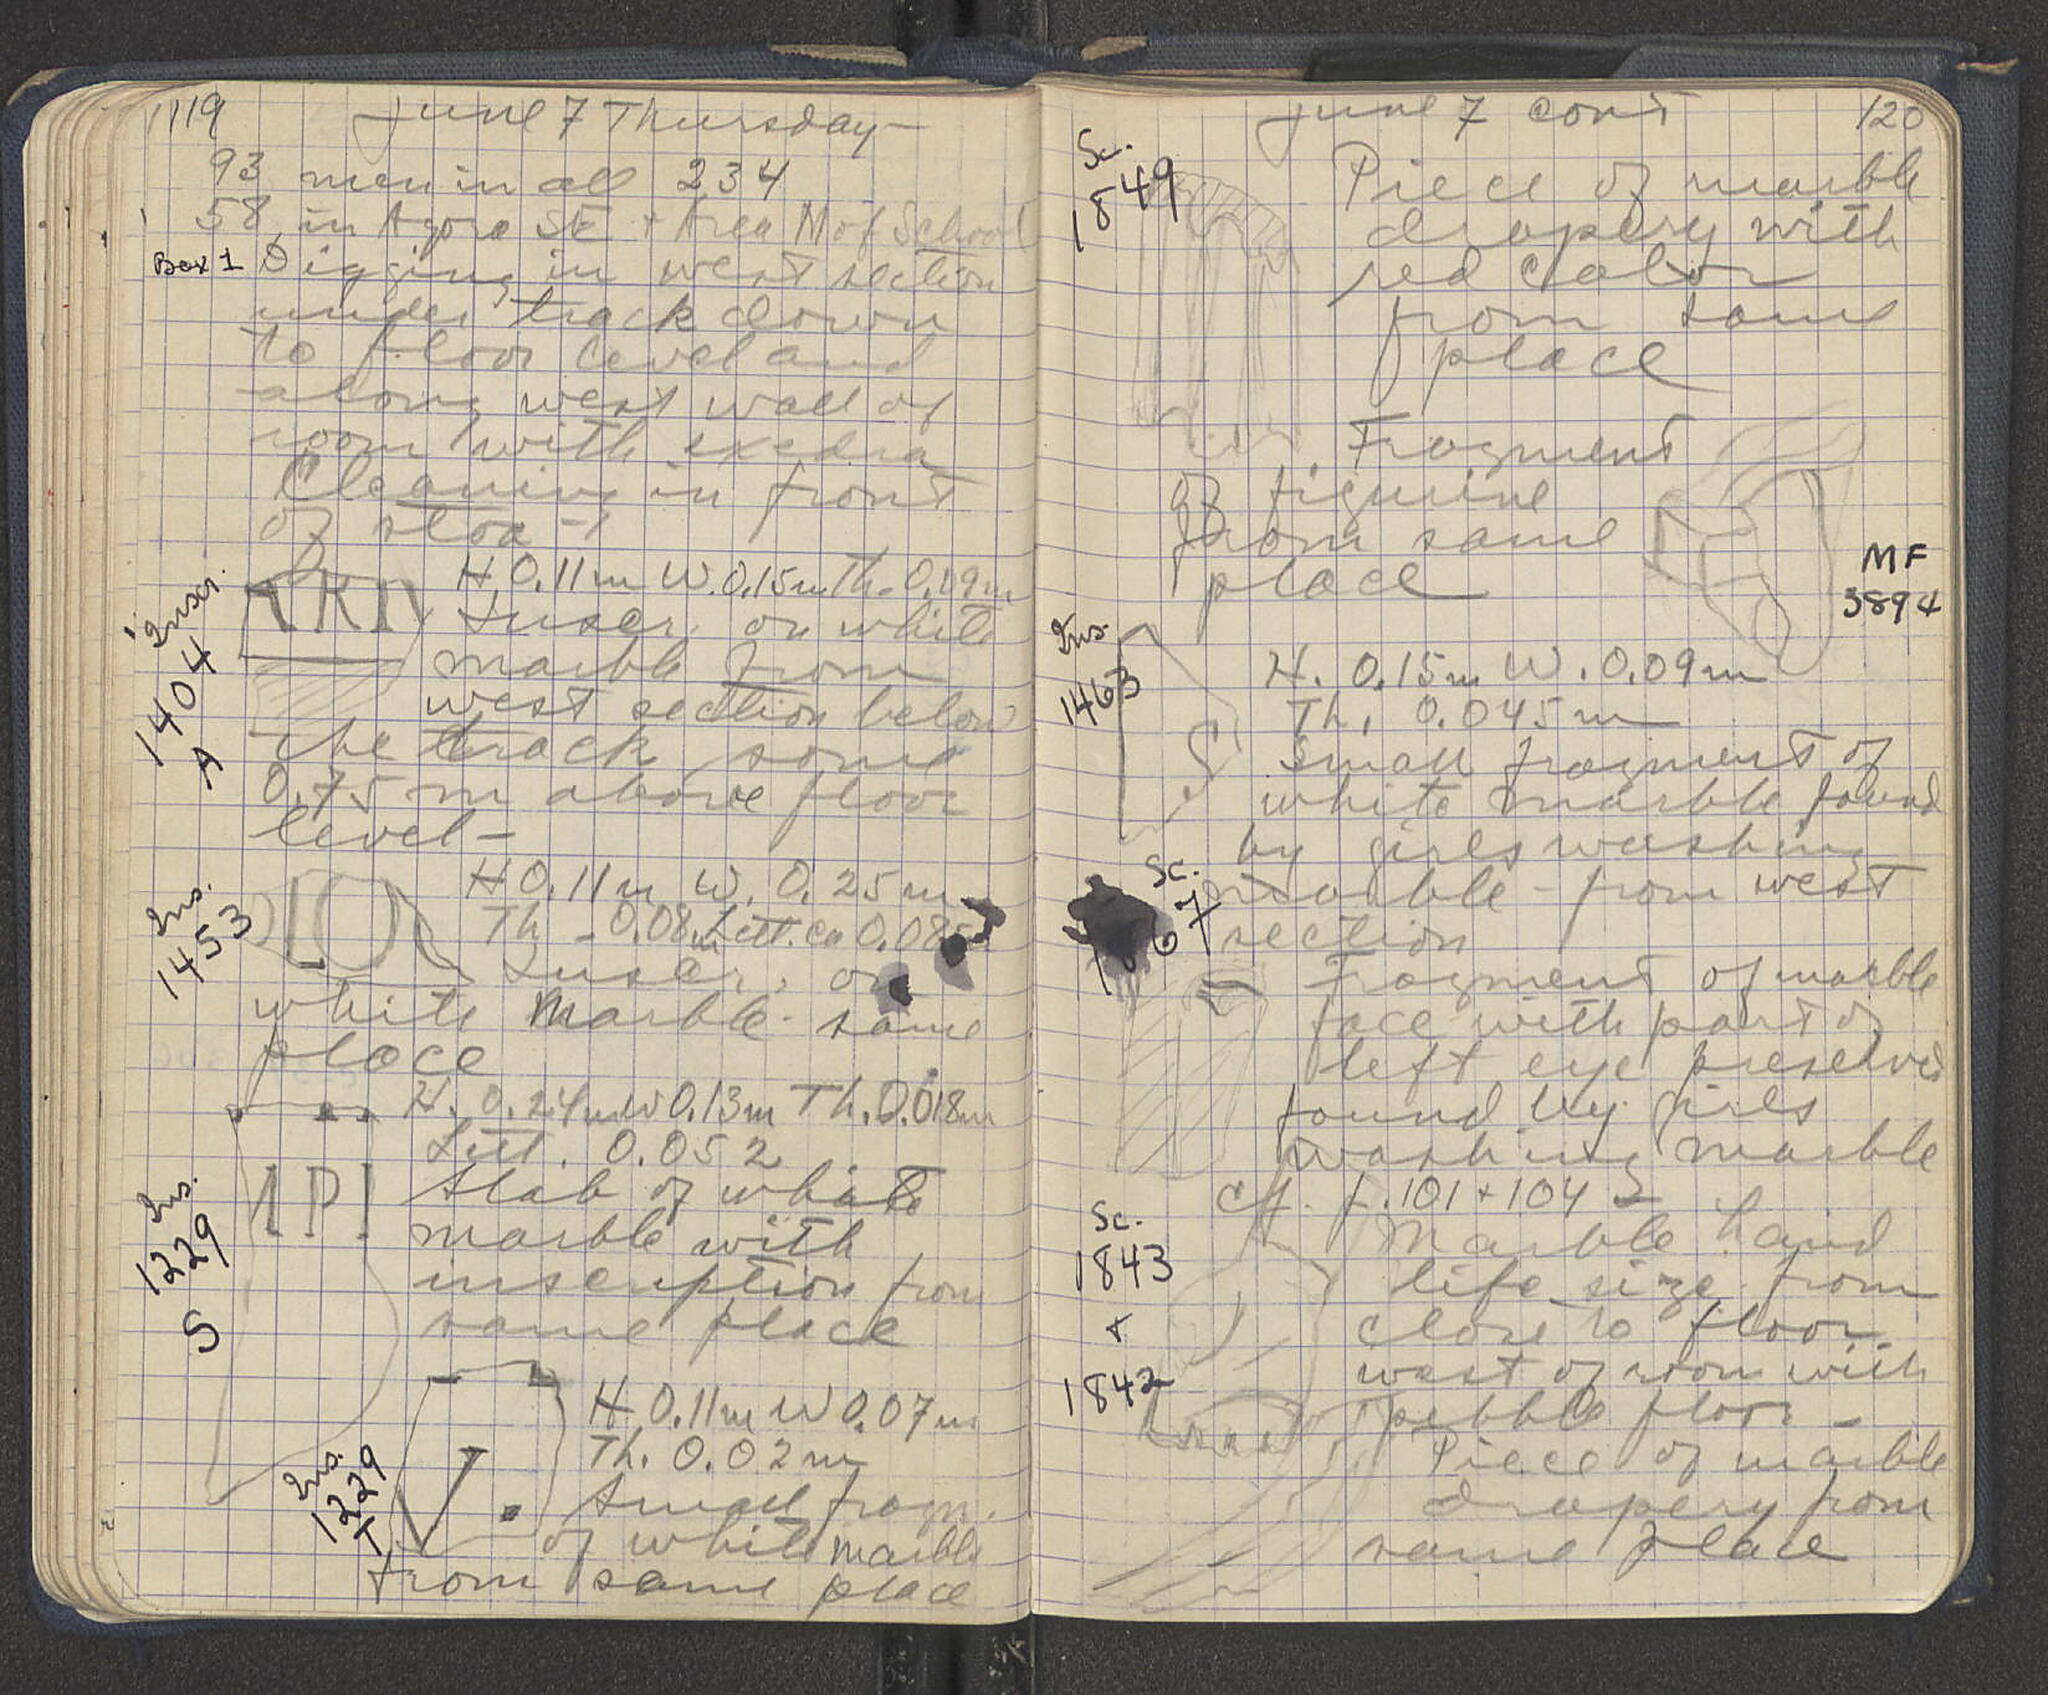 119 June 7 Thursday-
93 men in all 234
58 in Agora SE + Area M of School
Box 1 Digging in west section
under track down
to floor level and
along west wall of
room with exedra
Cleaning in front
of stoa -
Inscr.
1404
A
H 0.11m W. 0.15m Th. 0.09m
Inscr. on white
marble from
west section below
the track some
0.75 m above floor
level -
Ins.
1453
H 0.11m W. 0.25m
Th - 0.08m Lett. ca 0.085
Inscr. on
white Marble - same
place
H. 0.24m W 0.13m Th. 0.018m
Lett. 0.052
ΛΡΙ
Ins.
1229
S
Slab of white
marble with
inscription from
same place
H 0.11m W 0.07m
Th. 0.02m
Ins.
1229
T
Small fragm.
of white marble
from same place
June 7 cont 120
Sc.
1849
Piece of marble
drapery with
red color
from same
place
Fragment
of figurine
from same
place
MF
3894
Ins.
1463
H. 0.15m W. 0.09m
Th. 0.045m
Small fragment of
white marble found
by girls washing
marble - from west
section
Sc.
67
Fragment of marble
face with part of
left eye preserved
found by girls
washing marble
cf. p. 101 + 104
Sc.
1843
+
1842
Marble hand
life size from
close to floor
west of room with
pebble floor -
Piece of marble
drapery from
same place